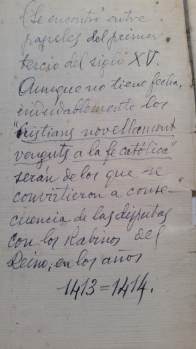 (Se encontró entre
papeles del primer
tercio del siglo XV.
Aunque no tiene fecha,
indudablemente los
"cristians novellament
venguts a la fe católica"
serán de los que se
convirtieron a conse-
cuencia de las disputas
con los Rabinos del
Reino, en los años
1413=1414.